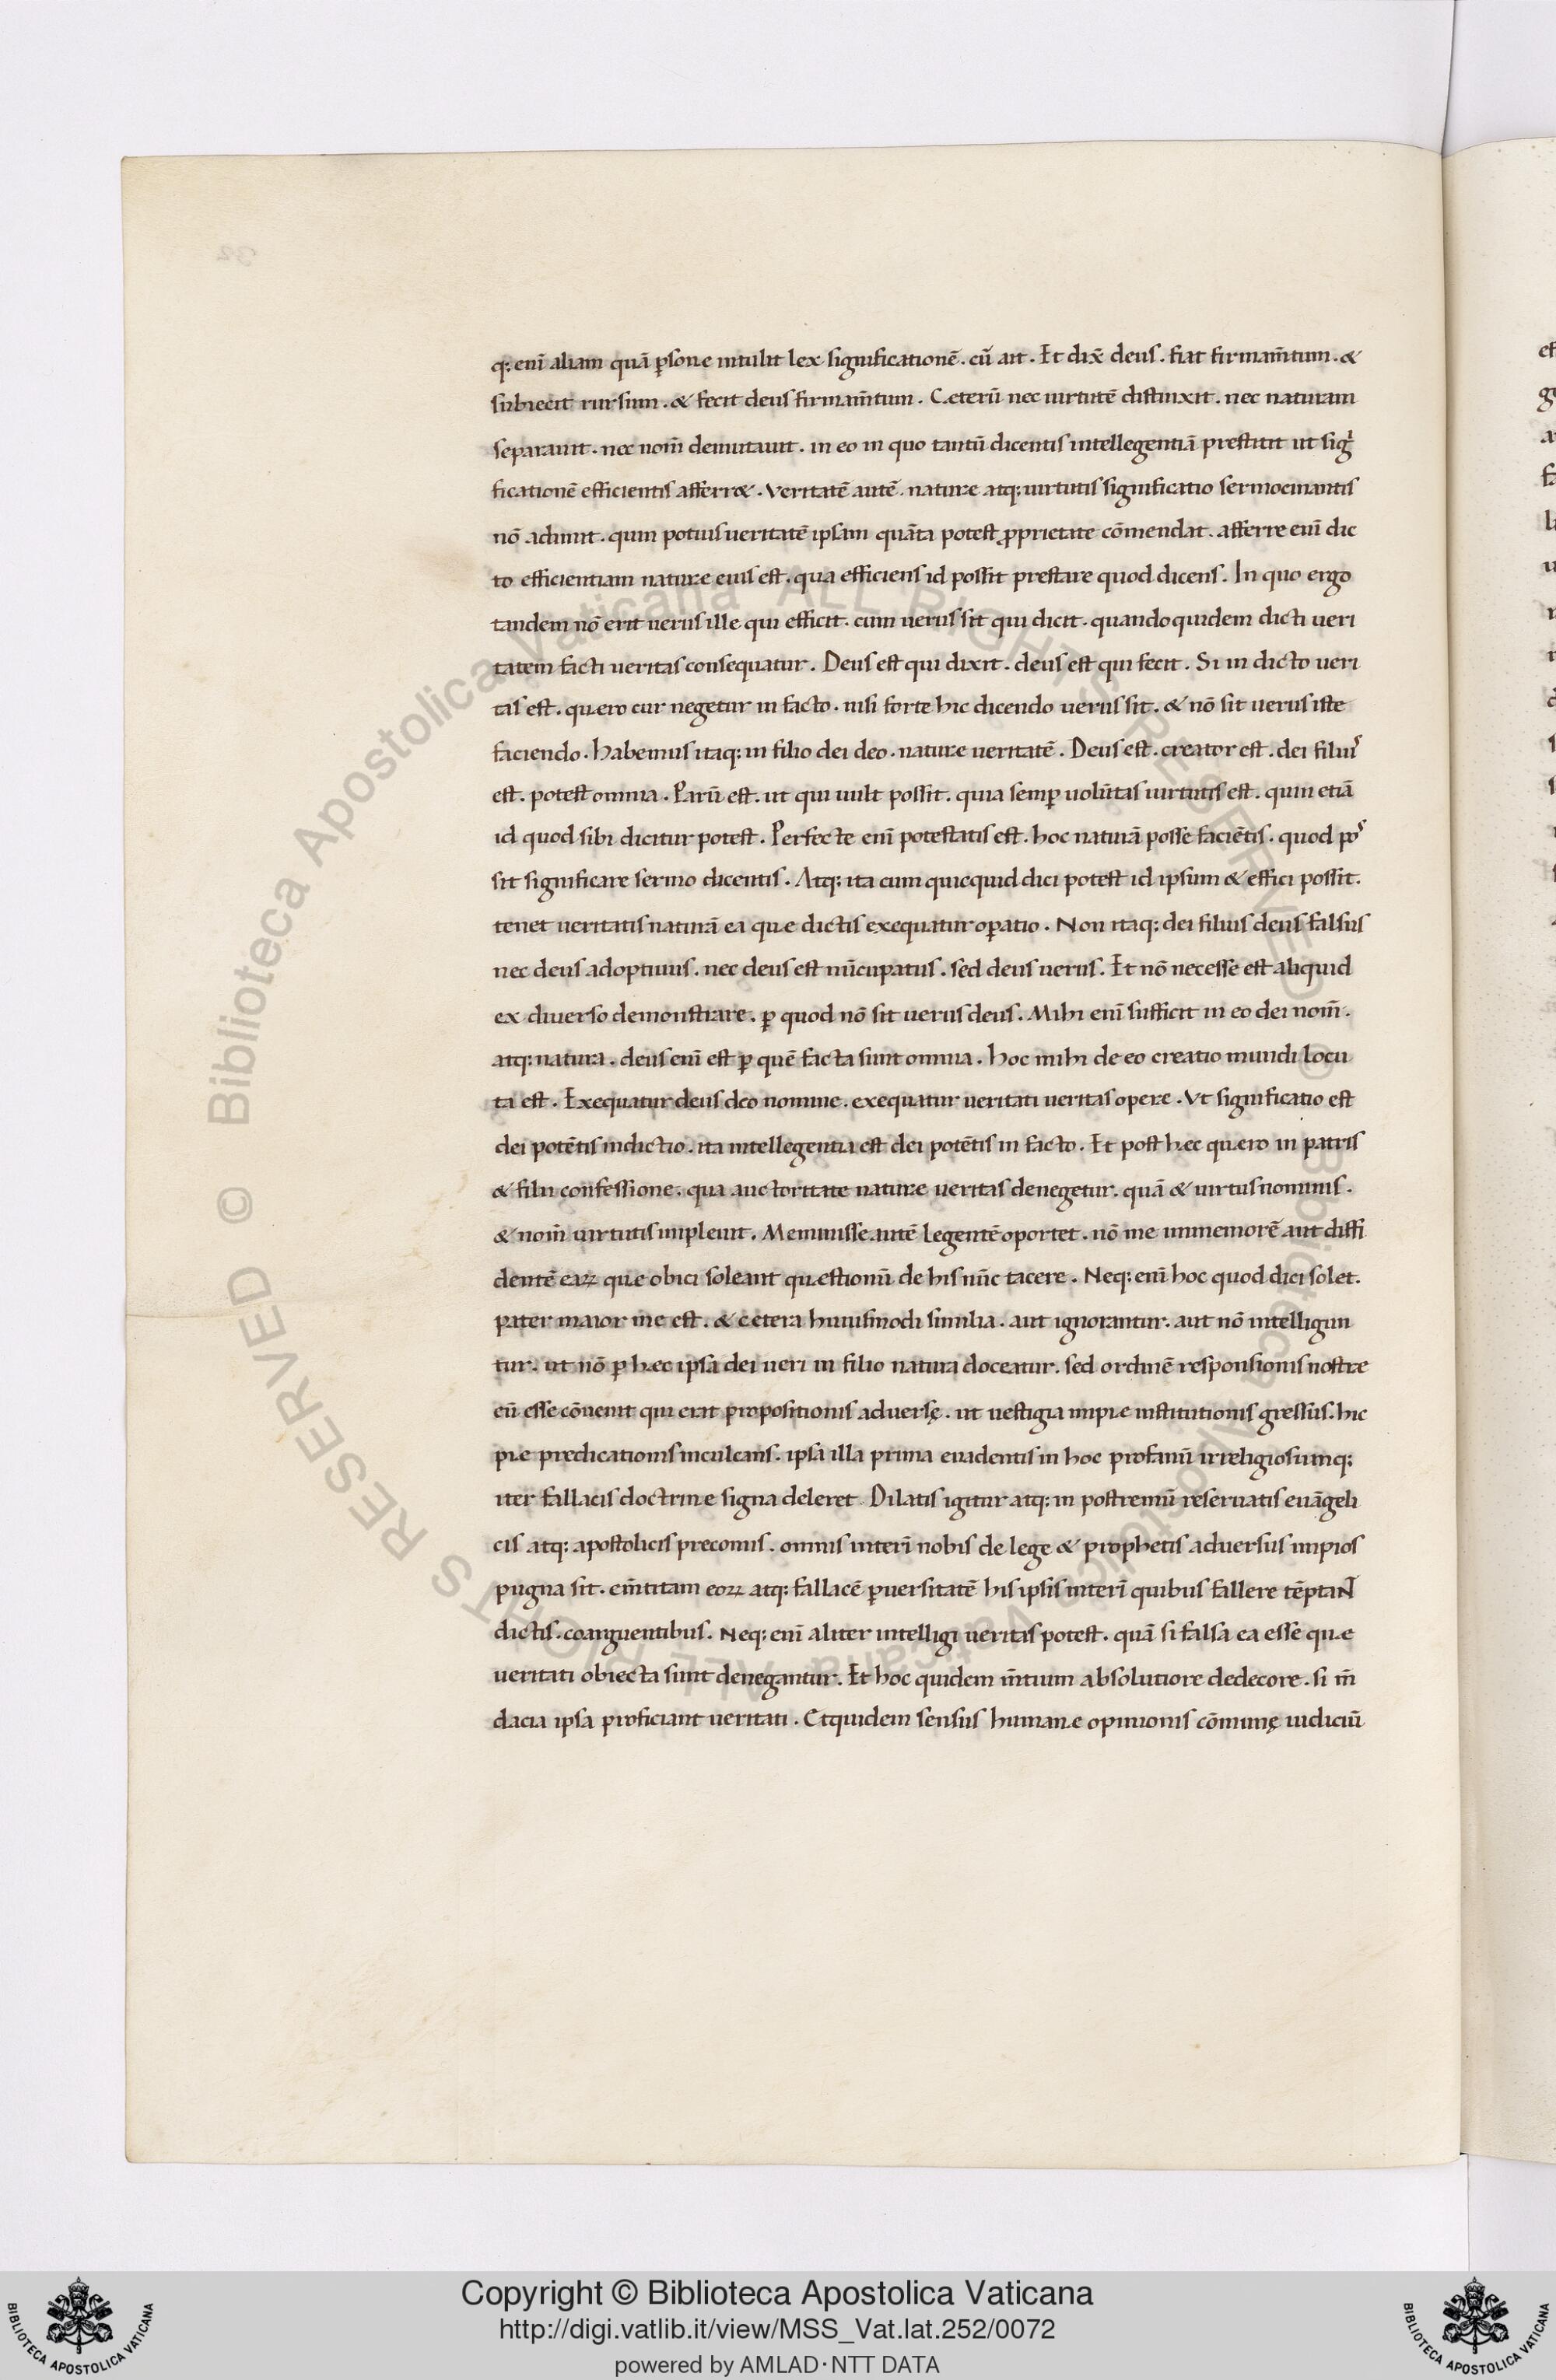 q: eni̅ aliam quā ꝑsone intulit lex significationē. cū ait. Et dix̄ deus. fiat firmam̄tum. &
subiecit rursum. & fecit deus firmam̄tum. Ceterū nec uirtutē distinxit. nec naturam
separauit. nec nom̄ demutauit. in eo in quo tantū dicentis intellegentiā prestitit ut sigͥ
ficationē efficientis afferr&. Veritatē autē. nature atq: uirtutis significatio sermocinantis
nō adimit. quin potius ueritatē ipsam quāta potest ꝓprietate cōmendat. afferre eni̅ dic
to efficientiam nature eius est. qua efficiens id possit prestare quod dicens. In quo ergo
tandem nō erit uerus ille qui efficit. cum uerus sit qui dicit. quandoquidem dicti ueri
tatem facti ueritas consequatur. Deus est qui dixit. deus est qui fecit. Si in dicto ueri
tas est. quero cur negetur in facto. nisi forte hic dicendo uerus sit. & nō sit uerus iste
faciendo. Habemus itaq: in filio dei deo. nature ueritatē. Deus est. creator est. dei filius
est. potest omnia. Parū est. ut qui uult possit. quia semꝑ uolūtas uirtutis est. quin etiā
id quod sibi dicitur potest. Perfecte eni̅ potestatis est. hoc naturā posse faciētis. quod pos
sit significare sermo dicentis. Atq: ita cum quicquid dici potest id ipsum & effici possit.
tenet ueritatis naturā ea que dictis exequatur oꝑatio. Non itaq: dei filius deus falsus
nec deus adoptiuus. nec deus est nūcupatus. sed deus uerus. Et nō necesse est aliquid
ex diuerso demonstrare. ꝑ quod nō sit uerus deus. Mihi eni̅ sufficit in eo dei nom̄.
atq: natura. deus eni̅ est ꝑ quē facta sunt omnia. hoc mihi de eo creatio mundi locu
ta est. Exequatur deus deo nomine. exequatur ueritati ueritas opere. Ut significatio est
dei potētis indictio. ita intellegentia est dei potētis in facto. Et post hec quero in patris
& filii confessione. qua auctoritate nature ueritas denegetur. quā & uirtus nominis.
& nom̄ uirtutis impleuit. Meminisse autē legentē oportet. nō me immemorē aut diffi
dentē eaꝝ que obici soleant questionū de his nūc tacere. Neq: eni̅ hoc quod dici solet.
pater maior me est. & cetera huiusmodi similia. aut ignorantur. aut nō intelligun
tur. ut nō ꝑ hec ipsa dei ueri in filio natura doceatur. sed ordinē responsionis nostre
eū esse cōuenit qui erat propositionis aduersę. ut uestigia impie institutionis gressus. hic
pie predicationis inculcans. ipsa illa prima euadentis in hoc profanū irreligiosumq:
iter fallacis doctrine signa deleret. Dilatis igitur atq: in postremū reseruatis euāgeli
cis atq: apostolicis preconiis. omnis interi̅ nobis de lege & prophetis aduersus impios
pugna sit. em̄titam eoꝝ atq: fallacē ꝑuersitatē his ipsis interi̅ quibus fallere tēptaNT
dictis. coarguentibus. Neq: eni̅ aliter intelligi ueritas potest. quā si falsa ea esse que
ueritati obiecta sunt denegantur. Et hoc quidem m̄tium absolutiore dedecore. si m̄
dacia ipsa proficiant ueritati. Etquidem sensus humane opinionis cōmunę iudiciū
Copyright © Biblioteca Apostolica Vaticana
http://digi.vatlib.it/view/MSS_Vat.lat.252/0072
powered by AMLAD·NTT DATA
BIBLIOTECA APOSTOLICA VATICANA
BIBLIOTECA APOSTOLICA VATICANA
© Biblioteca Apostolica Vaticana ALL RIGHTS RESERVED © Biblioteca Apostolica Vaticana ALL RIGHTS RESERVED